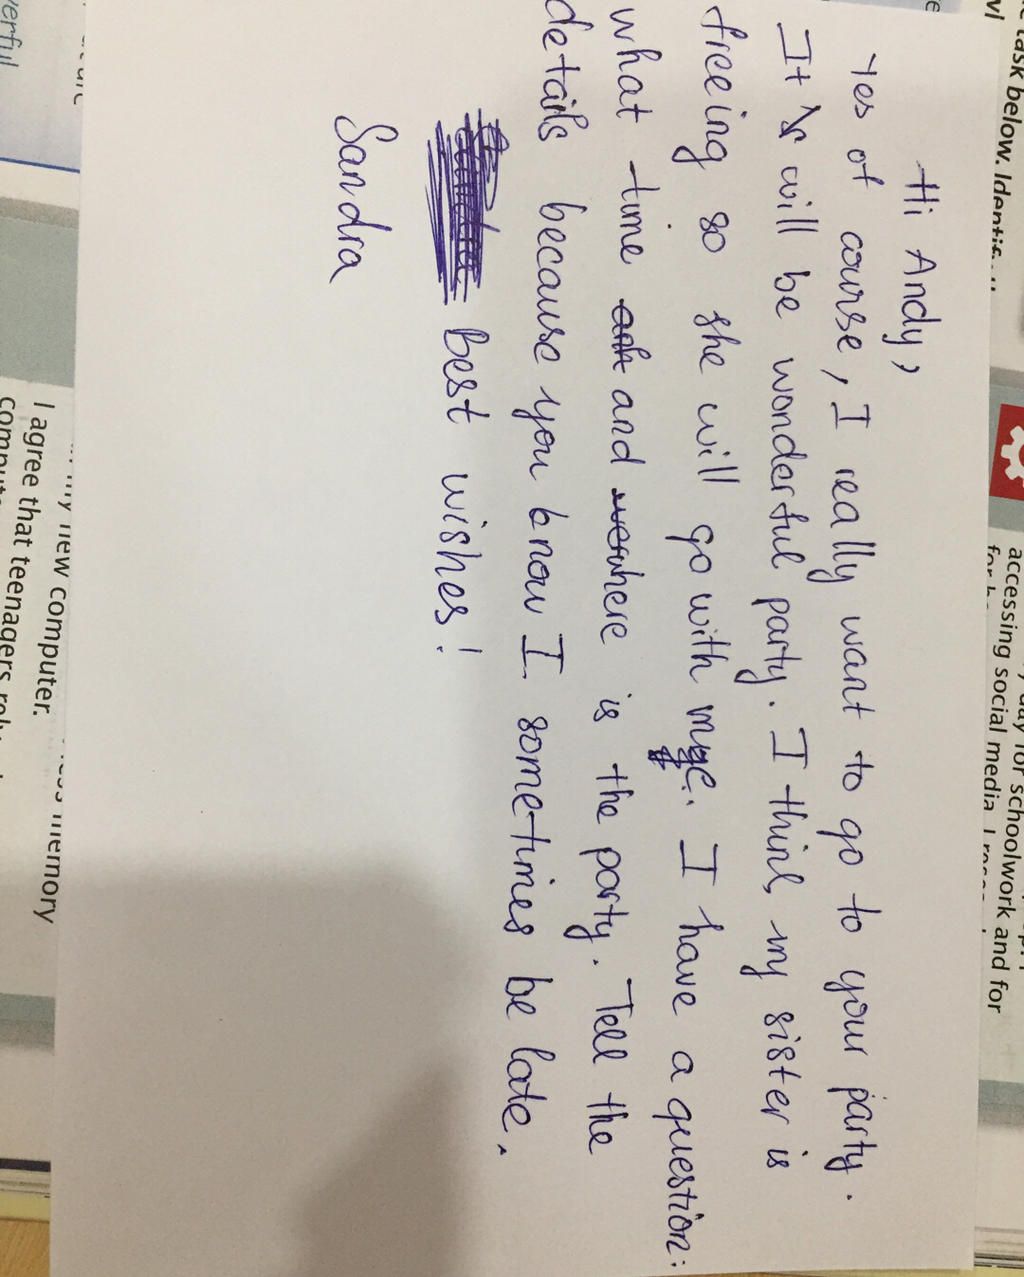 Hi Andy,
Yes of course, I really want to go to your party.
It will be wonderful party. I think my sister is
freeing so she will go with me. I have a question:
what time and where is the party. Tell the
details because you know I sometimes be late.
Best wishes!
Sandra
task below.
accessing social media
day for schoolwork and for
my new computer.
memory
I agree that teenagers rely
erful